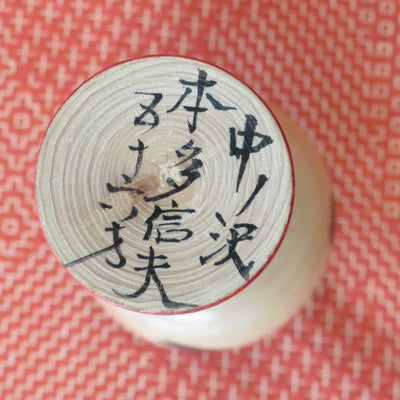 中ノ沢
本多信夫
五十六才